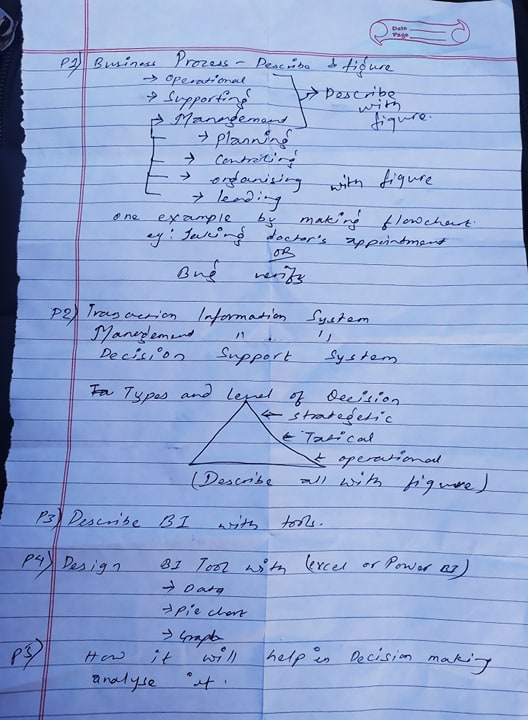 Date
Page
P1) Business Process - Describe & figure
→ Operational
→ Supporting
→ Management
→ Describe with figure.
→ planning
→ Controlling
→ organising with figure
→ leading
one example by making flowchart
eg: Taking doctor's appointment
OR
Bug verify
P2) Transaction Information System
Management " . ",
Decision Support System
Types and Level of Decision
← strategetic
← Tatical
← operational
(Describe all with figure)
P3) Describe BI with tools.
P4) Design BI Tool with (excel or Power BI)
→ Data
→ Pie chart
→ Graph
P5) How it will help in Decision making
analyse it.